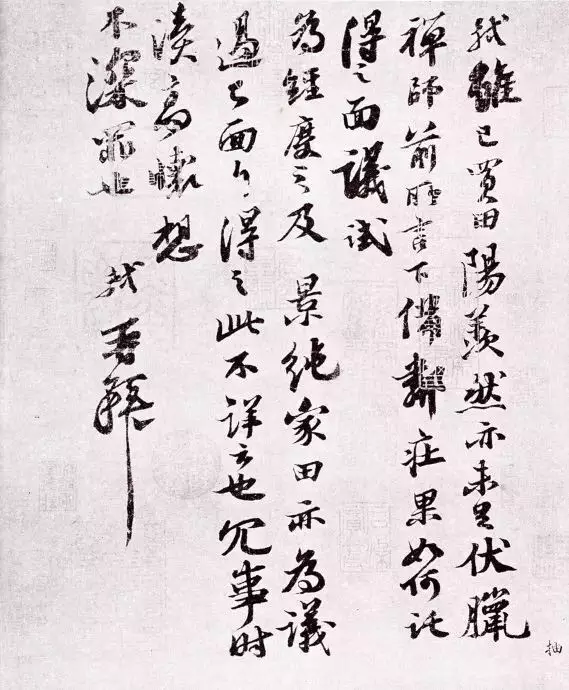 軾雖已買田陽羨然亦未足伏臘
禪師前所言下備鄰莊果如何託
得之面議試
為經度之及 景純家田亦為議
過已面白得之此不詳云也冗事時
瀆高懷想
不深罪也
軾再拜